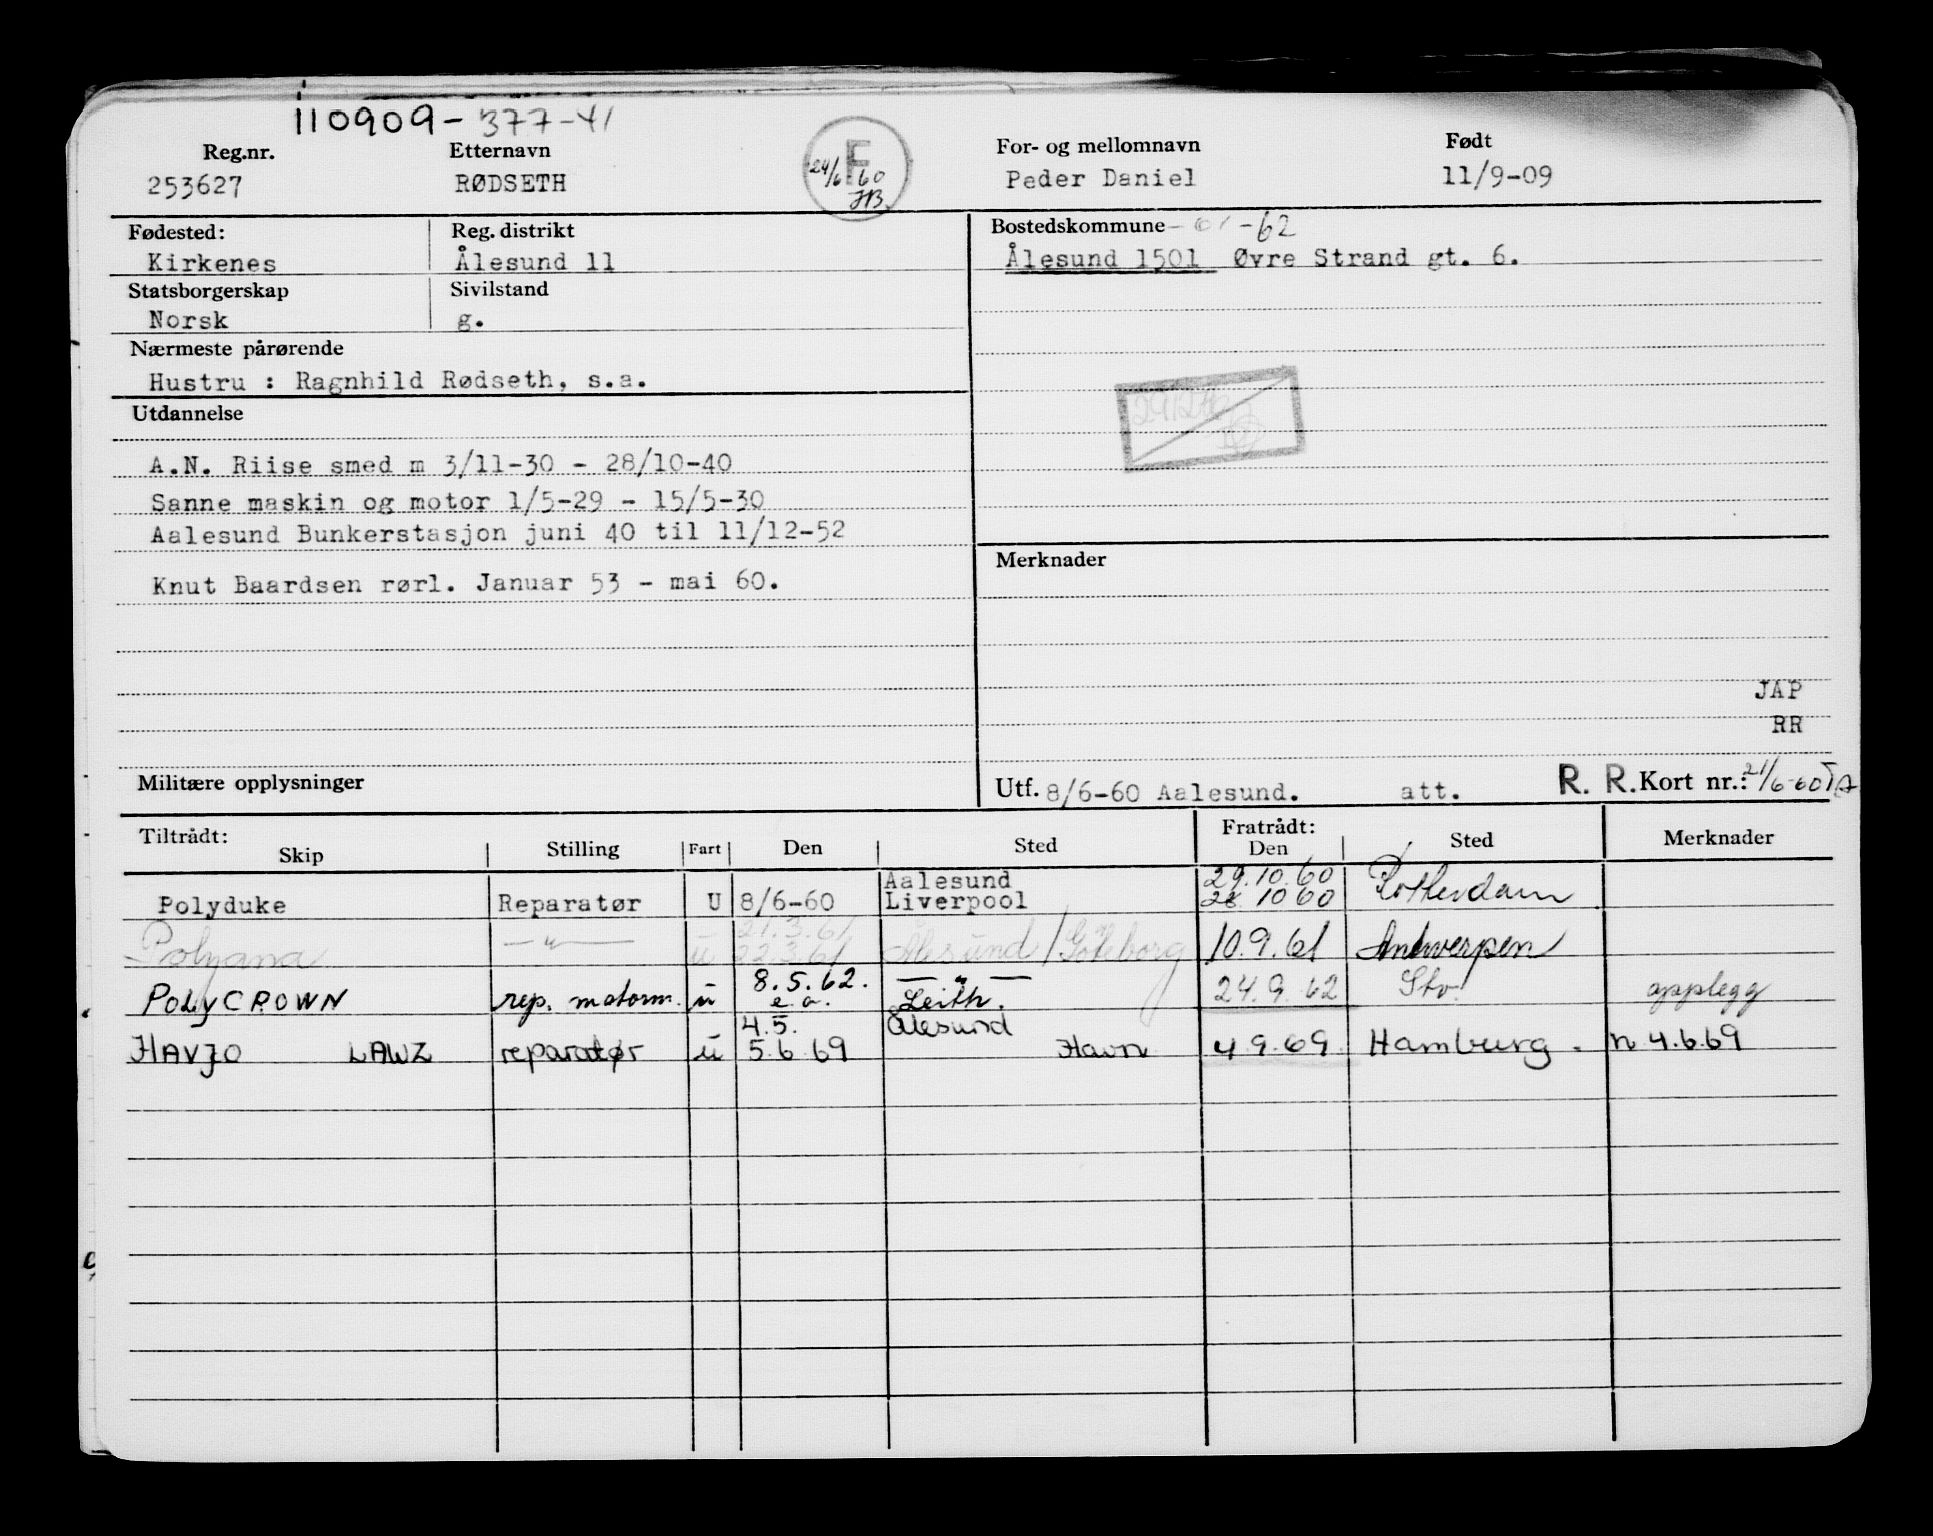 110909-377-41
Reg.nr. Etternavn For- og mellomnavn Født
253627 RØDSETH F 24/6 60 JB. Peder Daniel 11/9-09
Fødested: Reg. distrikt Bostedskommune -62
Kirkenes Ålesund 11 Ålesund 1501 Øvre Strand gt. 6.
Statsborgerskap Sivilstand
Norsk g.
Nærmeste pårørende
Hustru : Ragnhild Rødseth, s.a.
Utdannelse
A.N. Riise smed m 3/11-30 - 28/10-40
Sanne maskin og motor 1/5-29 - 15/5-30
Aalesund Bunkerstasjon juni 40 til 11/12-52
Knut Baardsen rørl. Januar 53 - mai 60.
Merknader
JAP
RR
Militære opplysninger
Utf. 8/6-60 Aalesund. att. R. R. Kort nr.: 21/6-60
Tiltrådt: Fratrådt:
Skip Stilling Fart Den Sted Den Sted Merknader
Aalesund 29.10.60
Polyduke Reparatør U 8/6-60 Liverpool 28.10 60 Rotterdam
21.3.61
Polyana —"— u 22.3.61 Ålesund/Göteborg 10.9.61 Antwerpen
8.5.62. —"—
POLYCROWN rep. motorm. u e.a. Leith. 24.9.62 Sto. opplegg
4.5. Ålesund
HAVJO LAWZ reparatør u 5.6.69 Havn 4.9.69 Hamburg. n 4.6.69